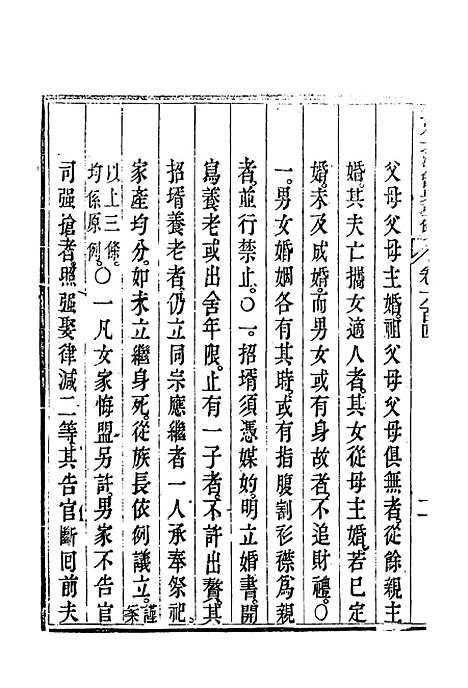 父母父母主婚祖父母父母俱無者從餘親主
婚其夫亡攜女適人者其女從母主婚若已定
婚未及成婚而男女或有身故者不追財禮〇
一男女婚姻各有其時或有指腹割衫襟為親
者並行禁止〇一招壻須憑媒妁明立婚書開
寫養老或出舍年限止有一子者不許出贅其
招壻養老者仍立同宗應繼者一人承奉祭祀
家產均分如未立繼身死從族長依例議立謹案
以上三條均係原例〇一凡女家悔盟另許男家不告官
司强搶者照强娶律減二等其告官斷囘前夫